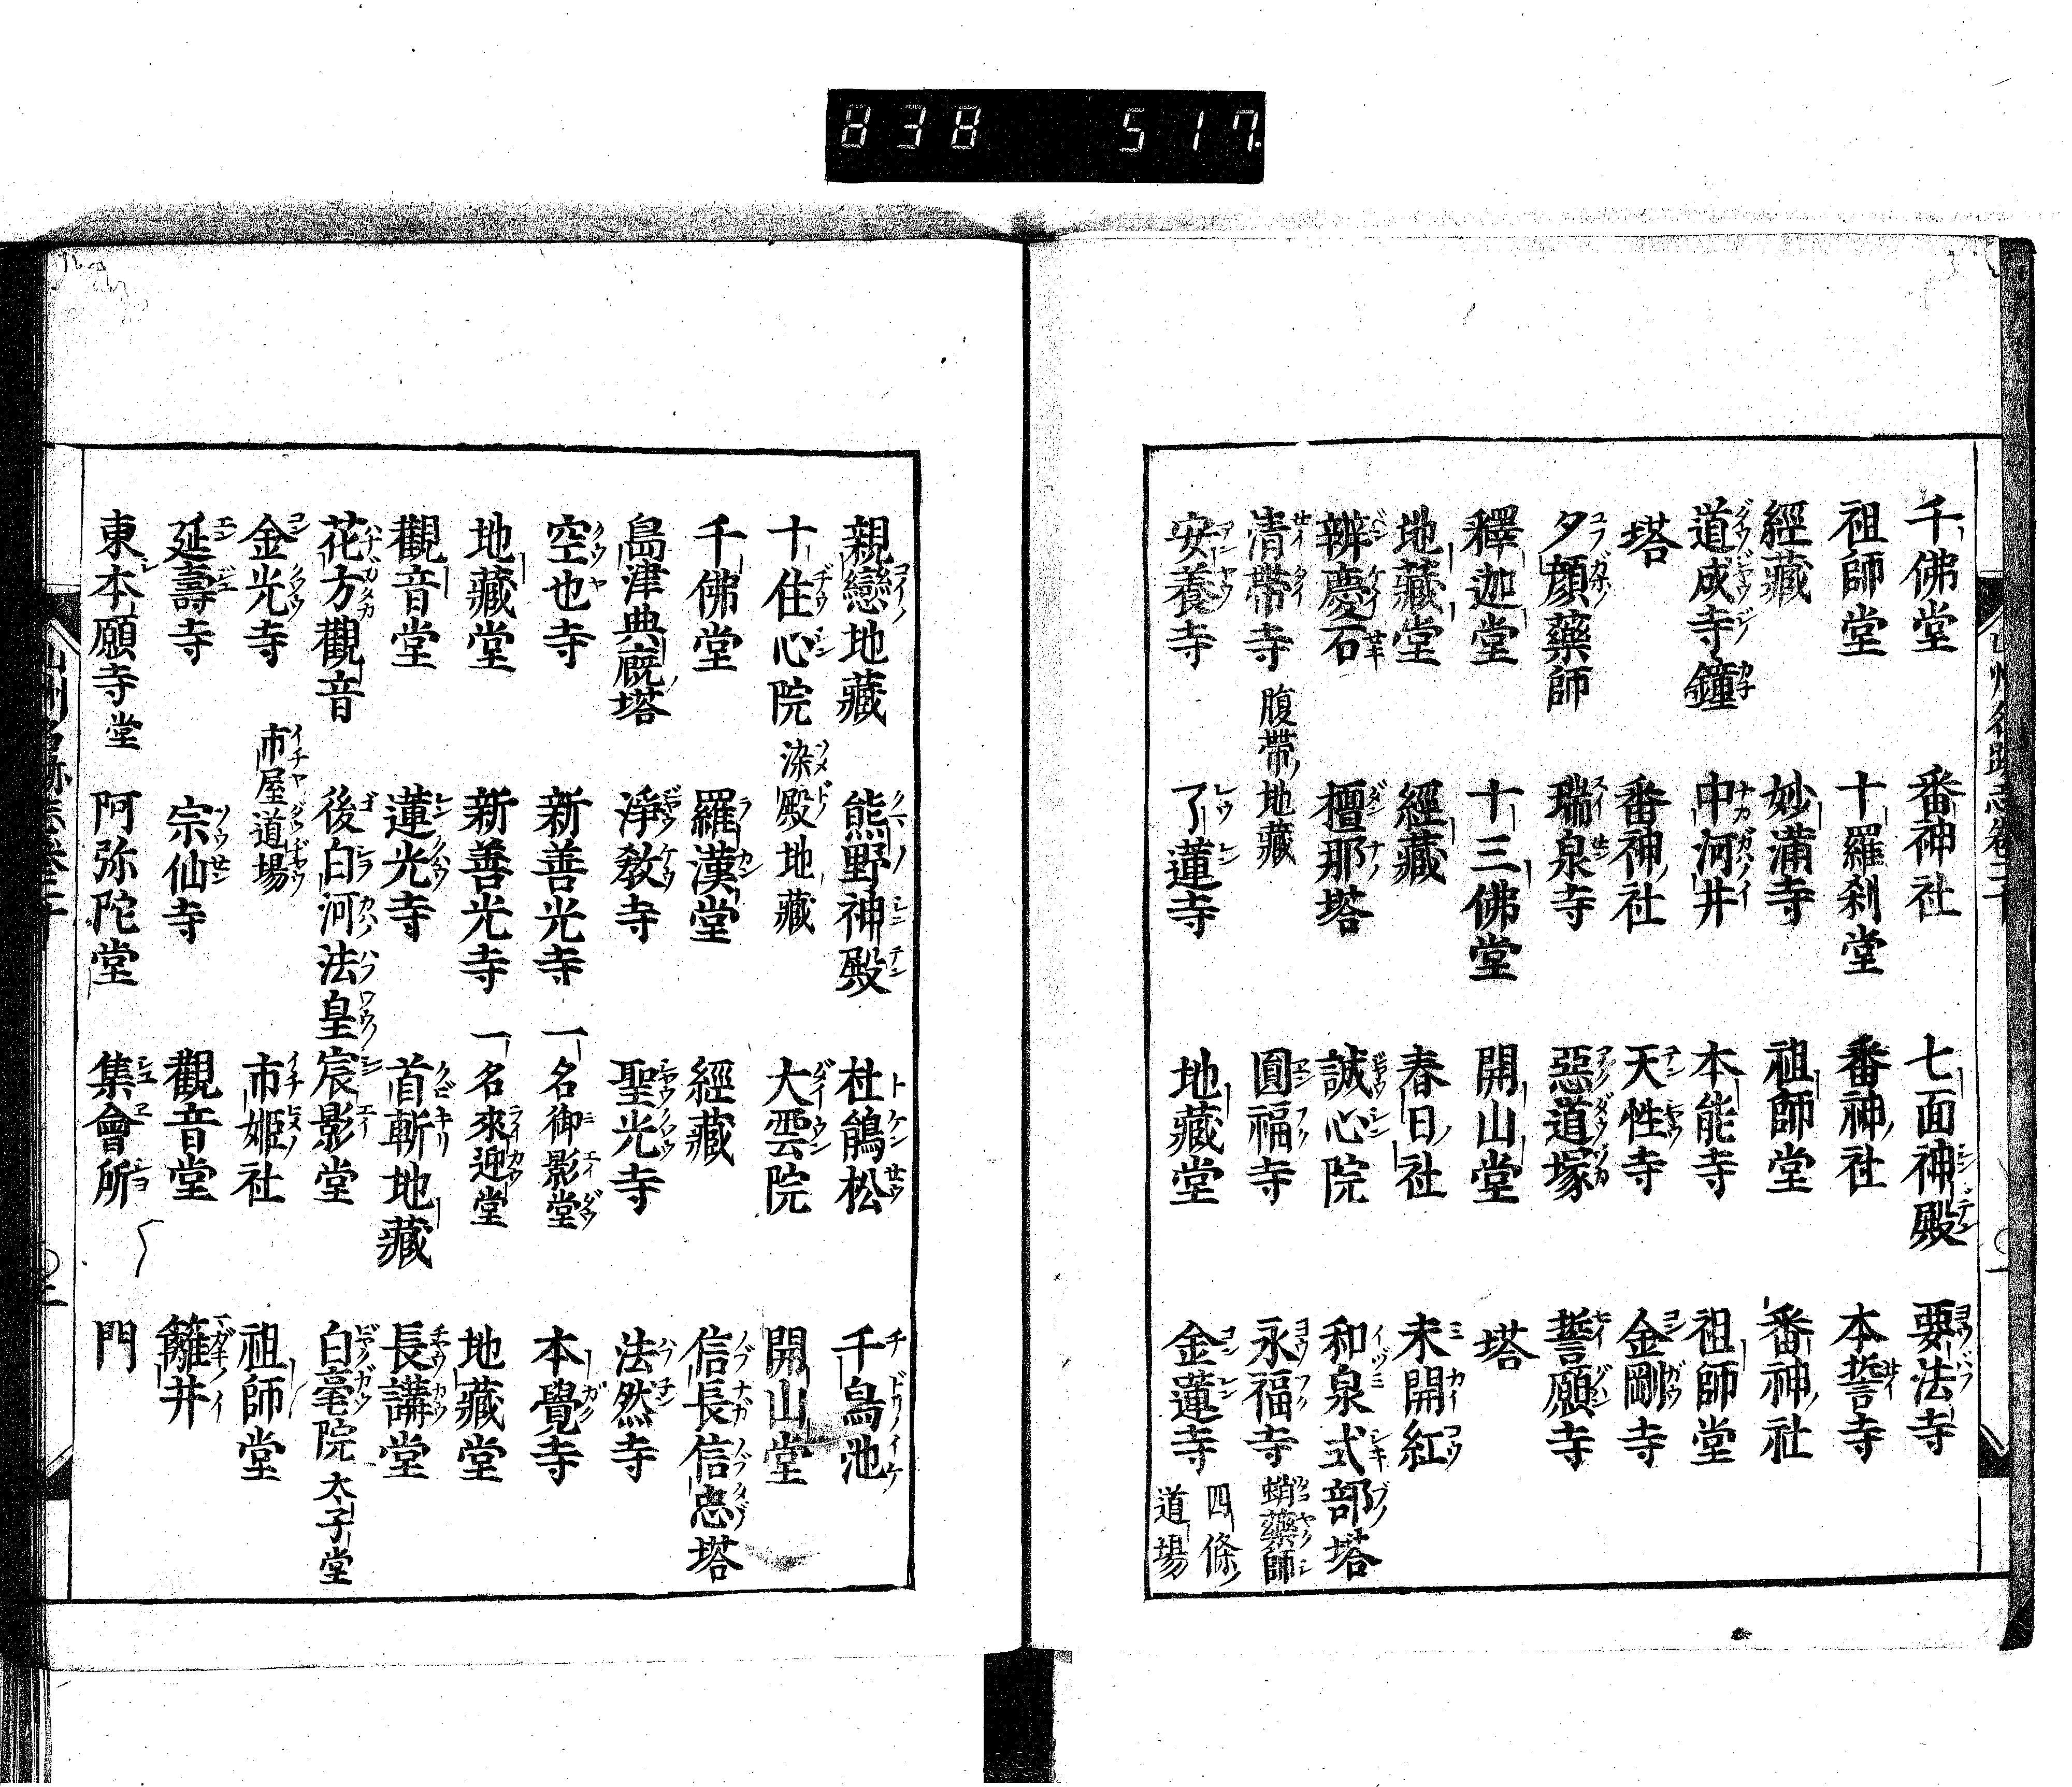 838 517
千佛堂 番神社 七面神殿 要法寺
祖師堂 十羅刹堂 番神社 本誓寺
經藏 妙滿寺 祖師堂 番神社
道成寺鐘 中河井 本能寺 祖師堂
塔 番神社 天性寺 金剛寺
夕顏藥師 瑞泉寺 惡道塚 誓願寺
釋迦堂 十三佛堂 開山堂 塔
地藏堂 經藏 春日社 未開紅
辨慶石 檀那塔 誠心院 和泉式部塔
清帶寺 腹帶地藏 圓福寺 永福寺 蛸藥師
安養寺 了蓮寺 地藏堂 金蓮寺 四條道場
親戀地藏 熊野神殿 杜鵑松 千鳥池
十住心院 染殿地藏 大雲院 開山堂
千佛堂 羅漢堂 經藏 信長信忠塔
島津典厩塔 淨教寺 聖光寺 法然寺
空也寺 新善光寺 一名御影堂 本覺寺
地藏堂 新善光寺 一名來迎堂 地藏堂
觀音堂 蓮光寺 首斬地藏 長講堂
花方觀音 後白河法皇宸影堂 白毫院 太子堂
金光寺 市屋道場 市姬社 祖師堂
延壽寺 宗仙寺 觀音堂 籬井
東本願寺堂 阿弥陀堂 集會所 門